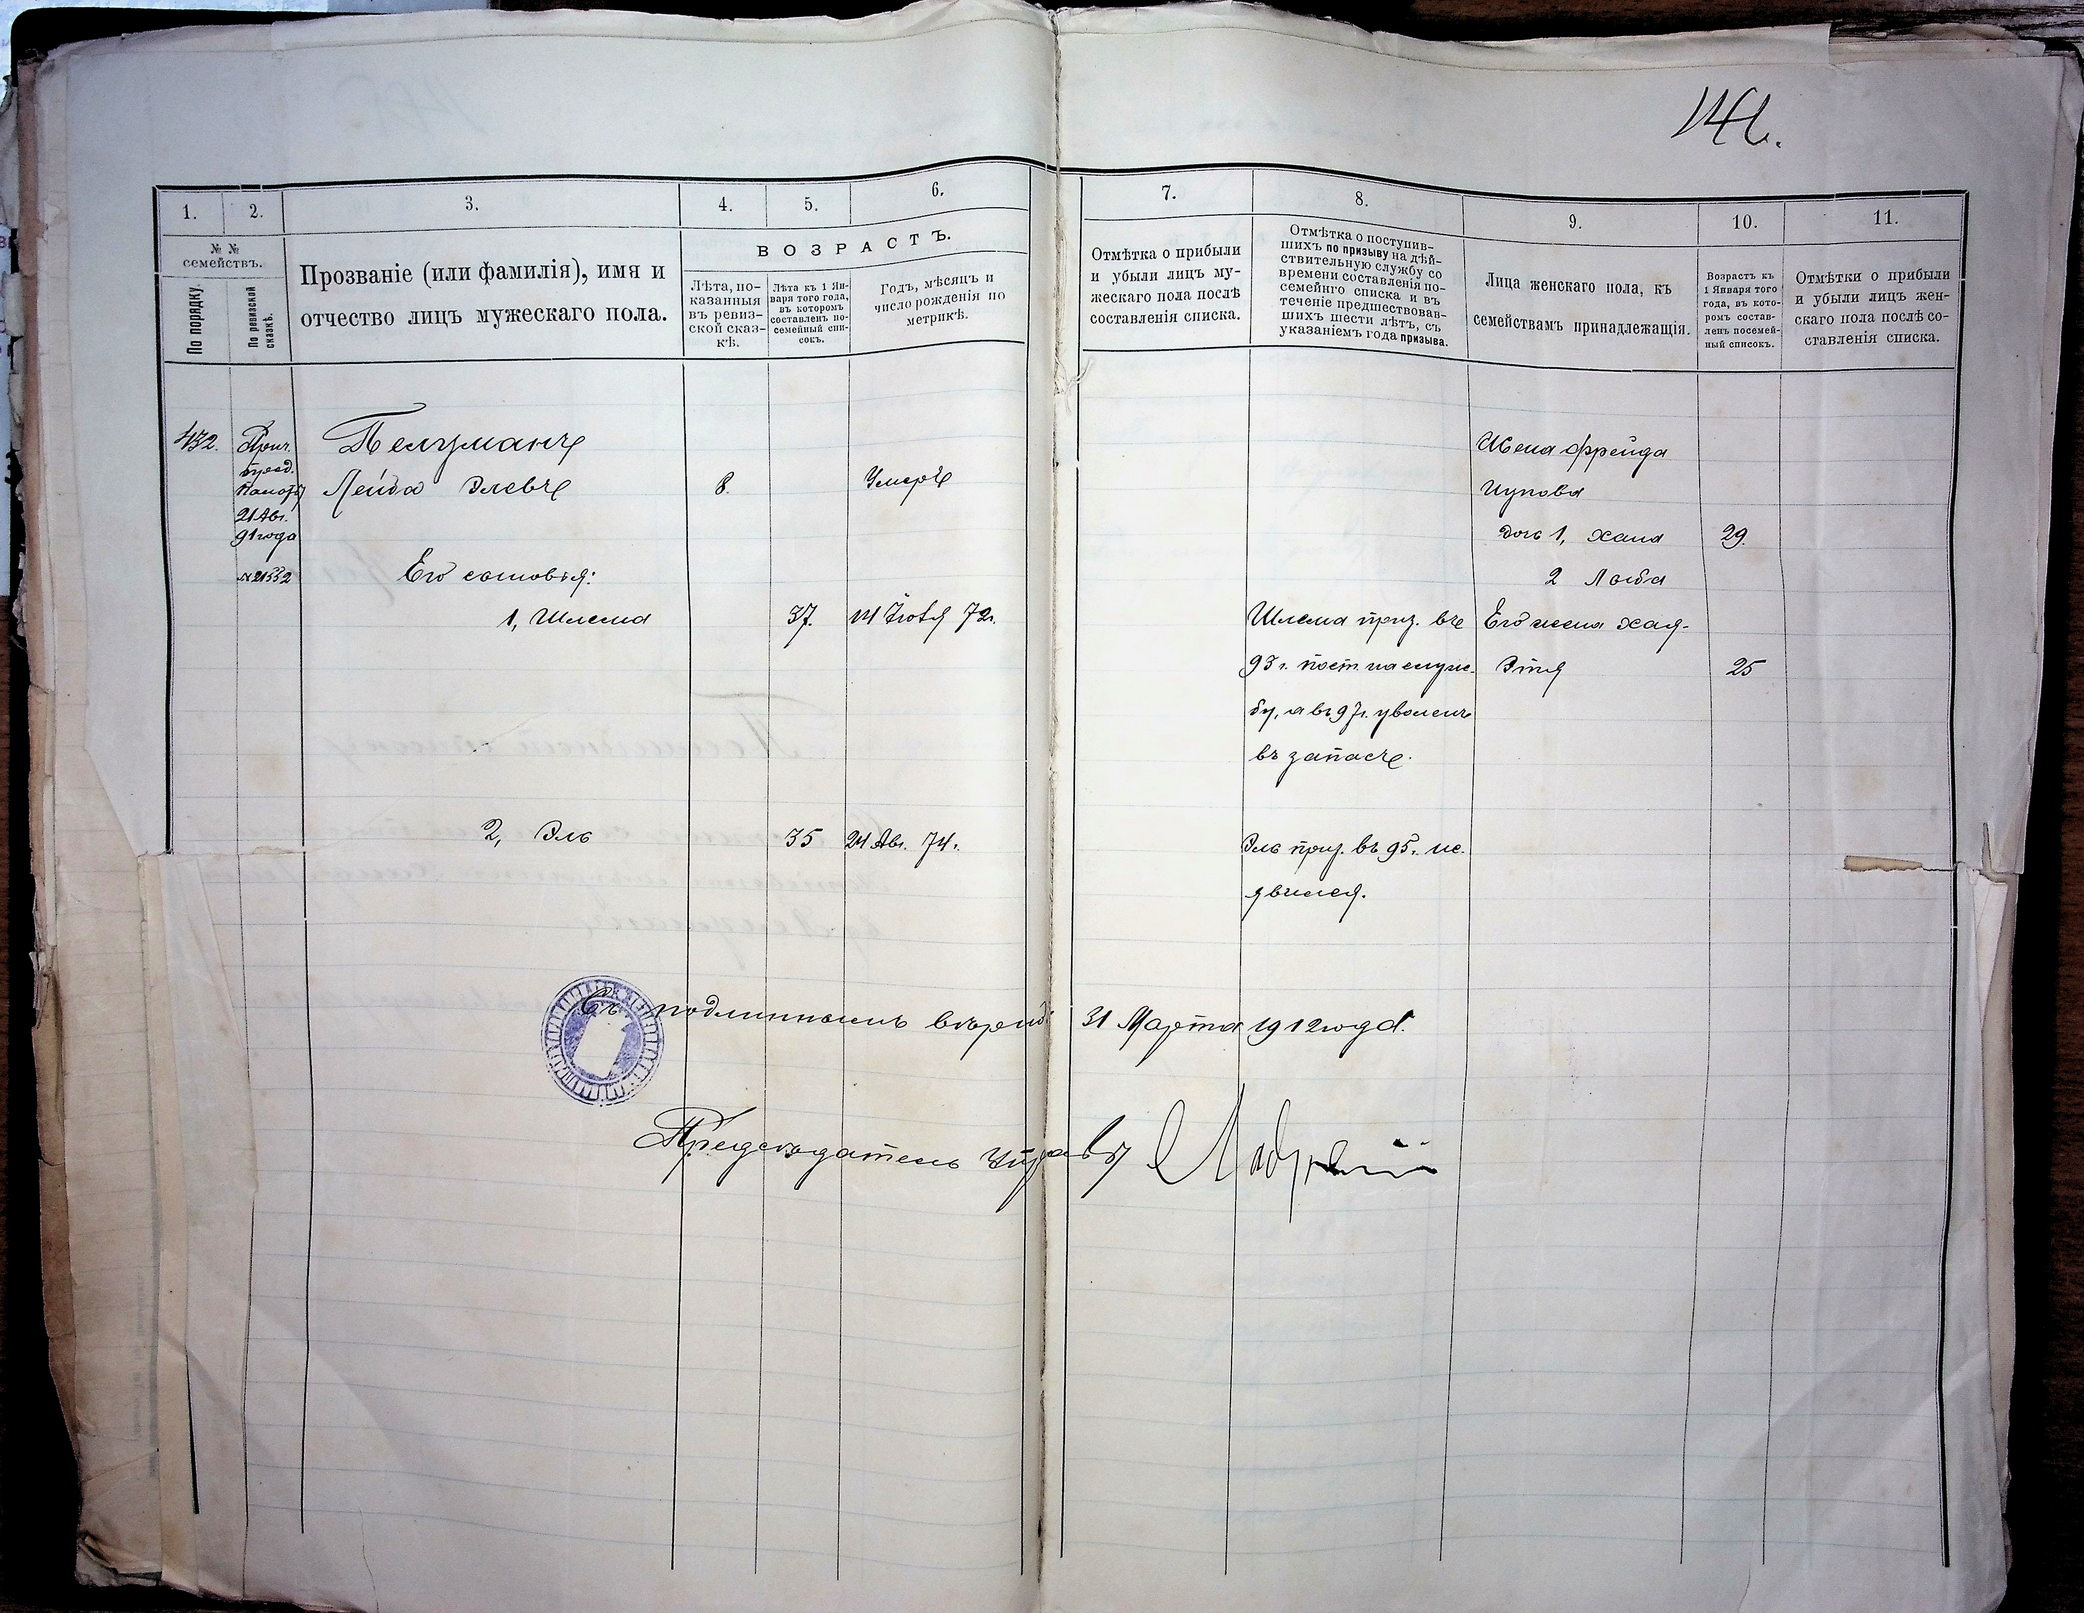 141.
1. 2. 3. 4. 5. 6. 7. 8. 9. 10. 11.
№ №
семействъ.
По порядку.
По ревизской
сказкѣ.
Прозваніе (или фамилія), имя и
отчество лицъ мужескаго пола.
ВОЗРАСТЪ.
Лѣта, по-
казанныя
въ ревиз-
ской сказ-
кѣ.
Лѣта къ 1 Ян-
варя того года,
въ которомъ
составленъ по-
семейный спи-
сокъ.
Годъ, мѣсяцъ и
число рожденія по
метрикѣ.
Отмѣтка о прибыли
и убыли лицъ му-
жескаго пола послѣ
составленія списка.
Отмѣтка о поступив-
шихъ по призыву на дѣй-
ствительную службу со
времени составленія по-
семейнго списка и въ
теченіе предшествовав-
шихъ шести лѣтъ, съ
указаніемъ года призыва.
Лица женскаго пола, къ
семействамъ принадлежащія.
Возрастъ къ
1 Января того
года, въ кото-
ромъ состав-
ленъ посемей-
ный списокъ.
Отмѣтки о прибыли
и убыли лицъ жен-
скаго пола послѣ со-
ставленія списка.
432.
21 Авг.
91 года
№ 21552
Пелцманъ
Лейба Элевъ 8. Умеръ
Его сыновья:
1, Шлема 37. 72г.
2, Эль 35 24 Авг. 74г.
Шлема приз. въ
93г. пост. на служ-
бу, а въ 97г. уволенъ
въ запасъ.
Эль приз. въ 95г. не
явился.
Жена Фрейда
дочь 1, Хана 29.
2
Его жена Хая-
Этля 25
Съ подлиннымъ вѣрно: 31 Марта 1912 года.
Предсѣдатель Управы